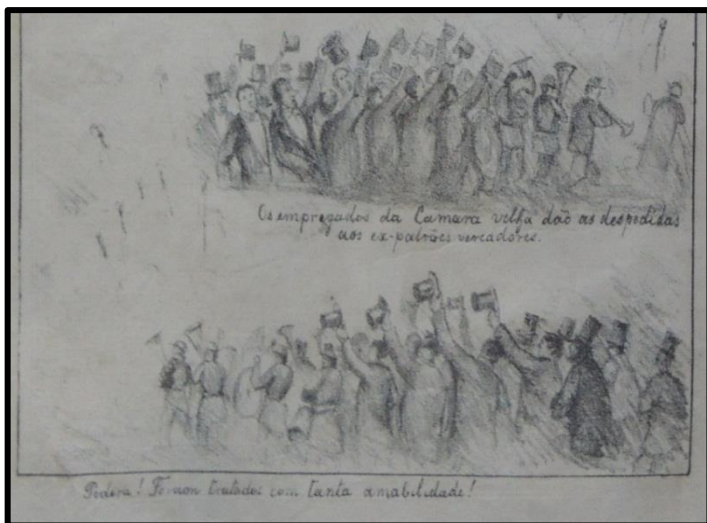 Os empregados da Camara velha dão as despedidas
aos ex-patrões vereadores.
Podera! Foram tratados com tanta amabilidade!